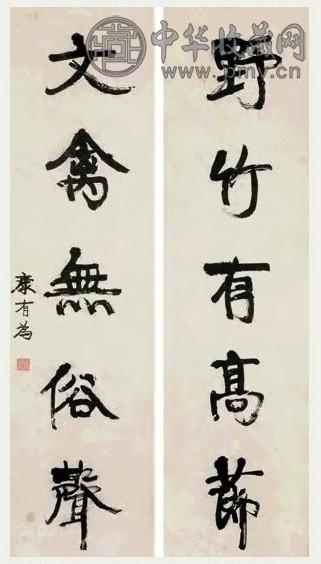 中华收藏网
www.pmy.cn
野竹有高節
文禽無俗聲
康有為